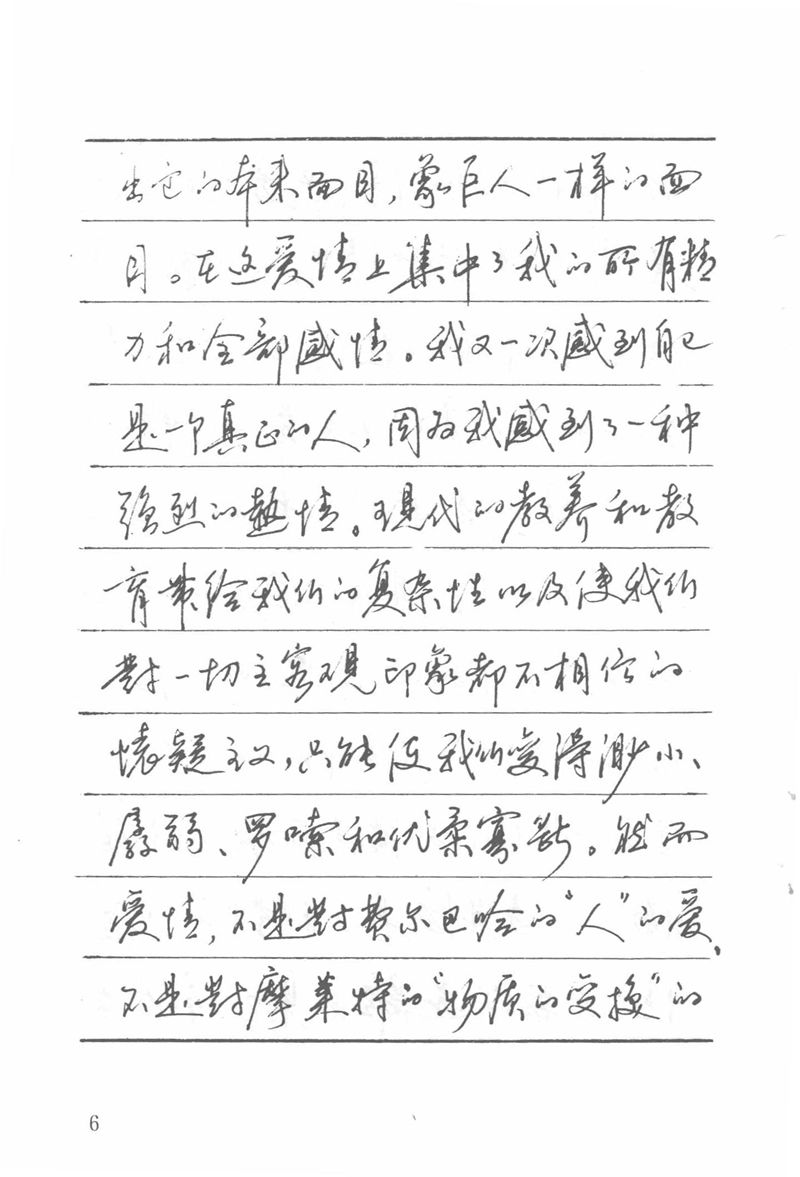 出它的本来面目，象巨人一样的面
目。在这爱情上集中了我的所有精
力和全部感情。我又一次感到自己
是一个真正的人，因为我感到了一种
强烈的热情。现代的教养和教
育带给我们的复杂性以及使我们
對一切主客观印象都不相信的
怀疑主义，只能使我们变得渺小、
孱弱、罗嗦和优柔寡断。然而
爱情，不是對费尔巴哈的“人”的爱，
不是對摩莱特的“物质的变换”的
6